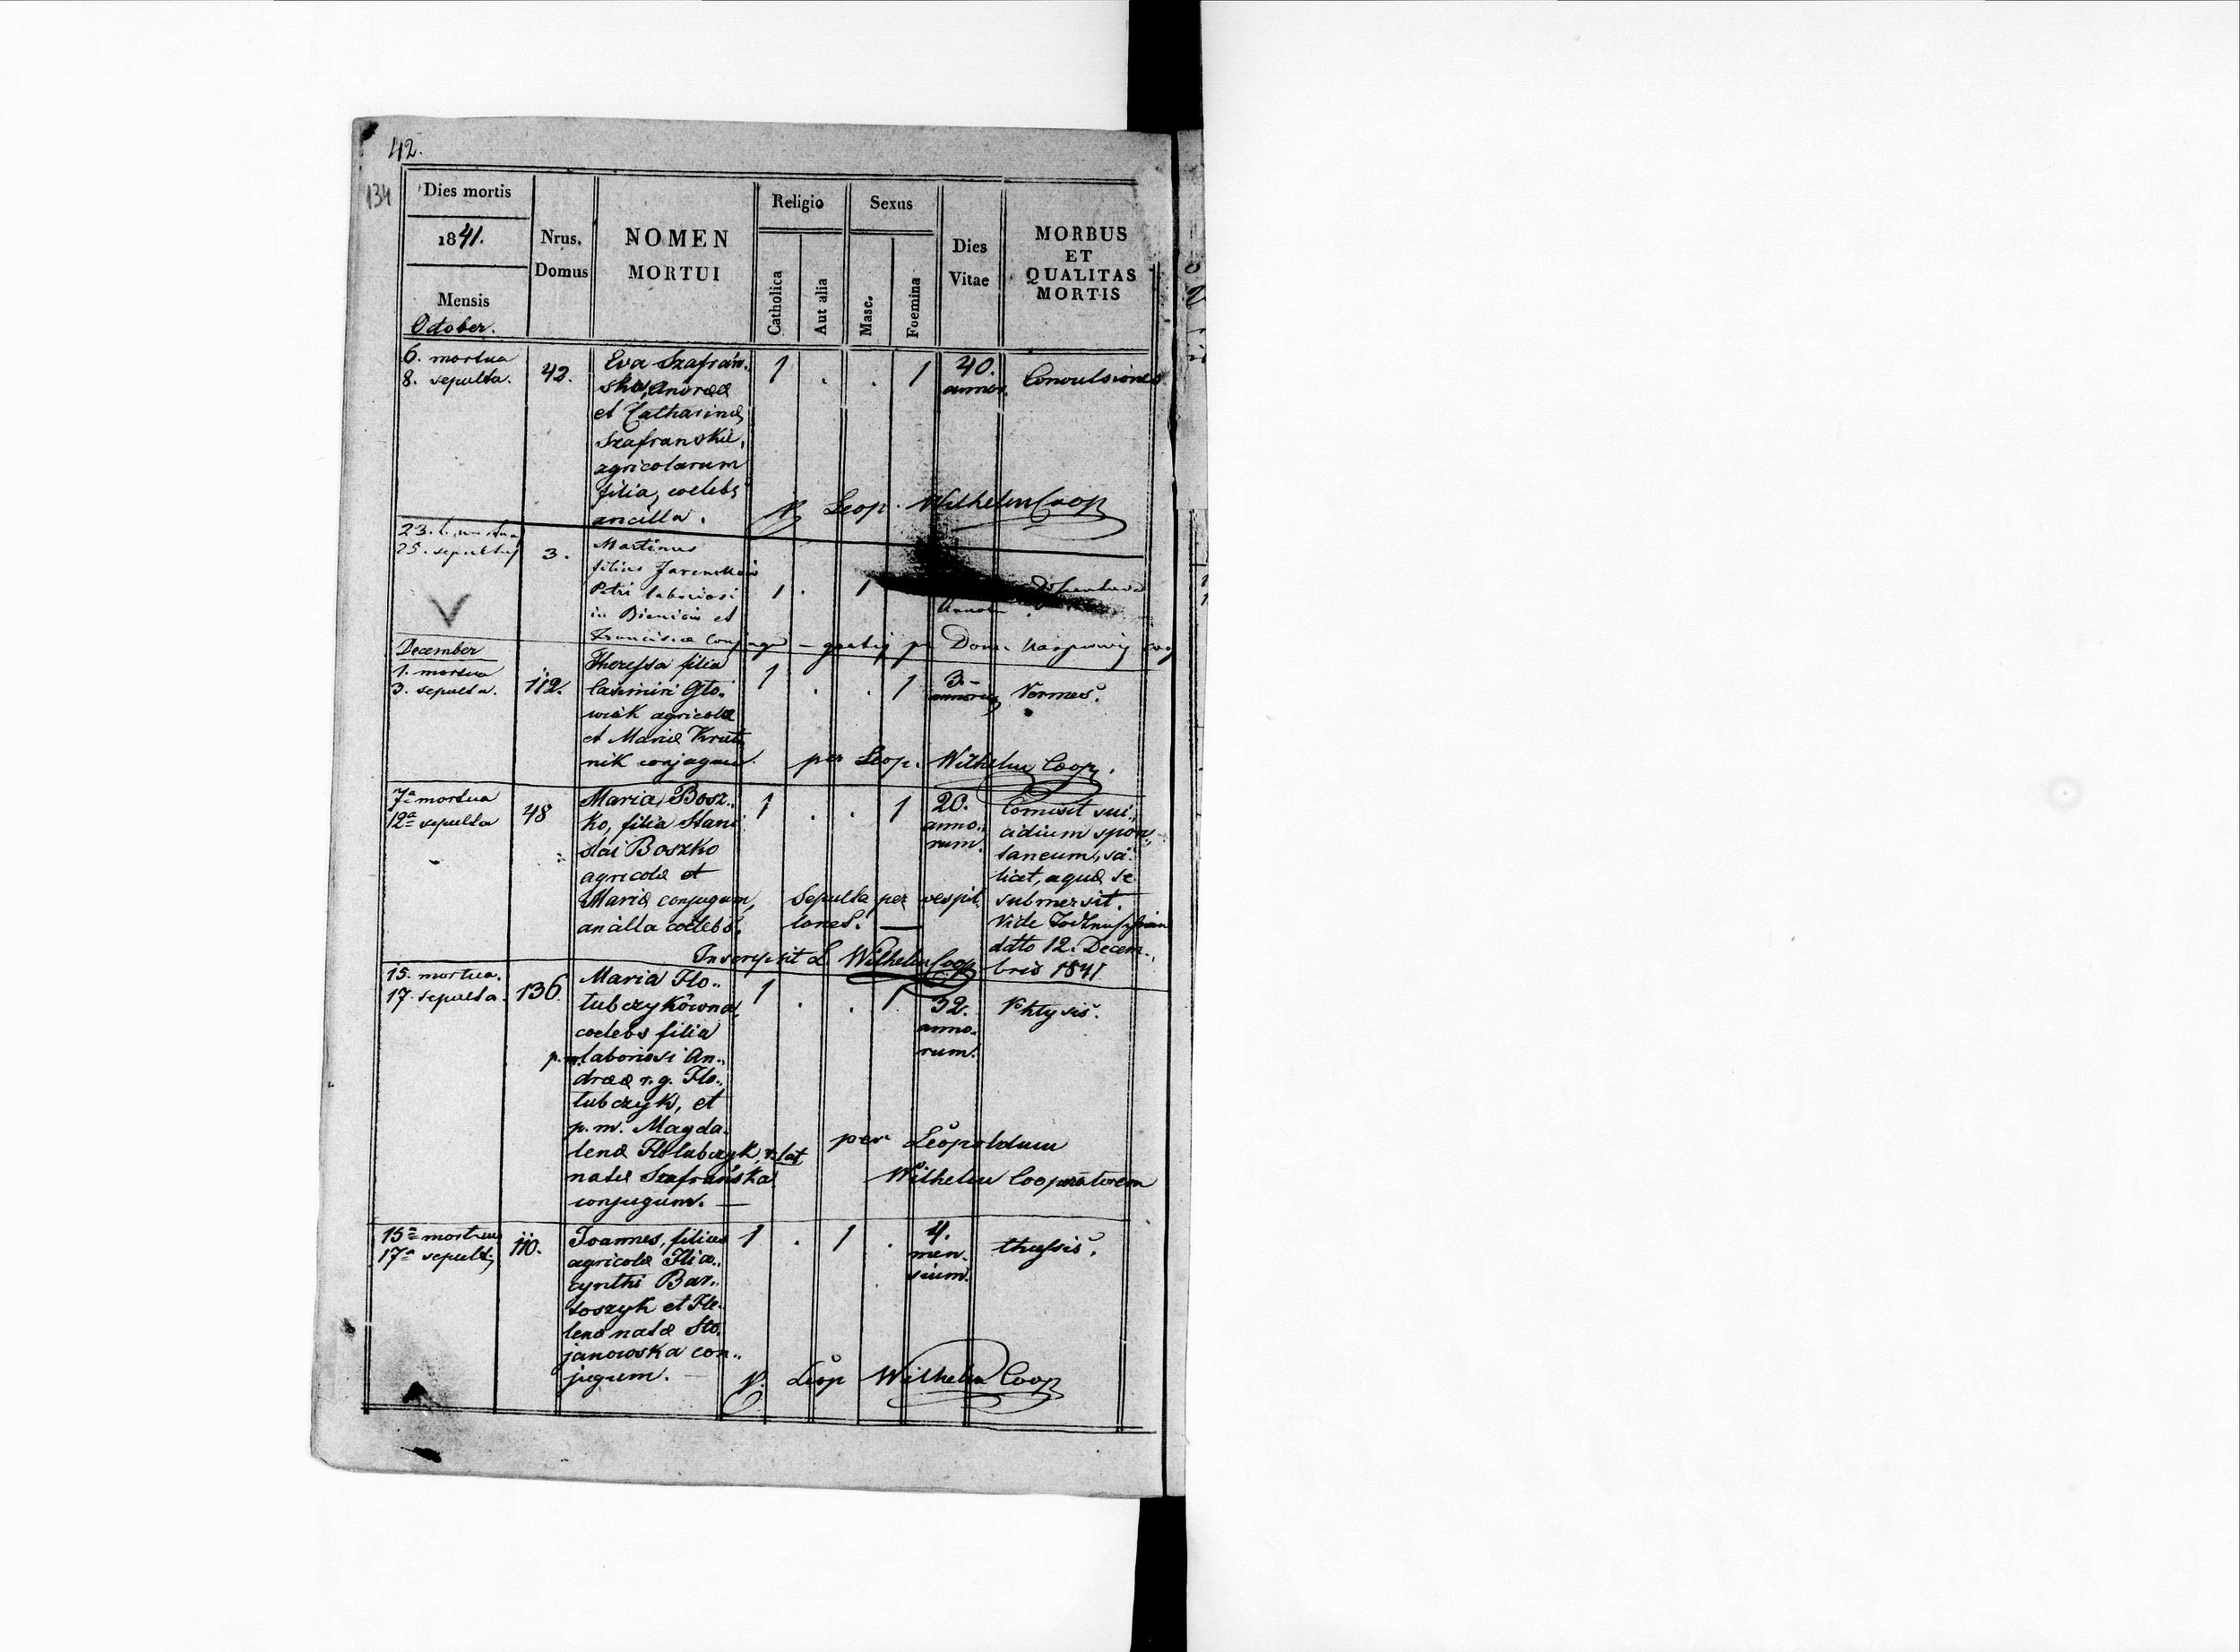 42.
134
Dies mortis
1841.
Mensis
October.
Nrus. Domus
NOMEN
MORTUI
Religio
Catholica
Aut alia
Sexus
Masc.
Foemina
Dies
Vitae
MORBUS
ET
QUALITAS
MORTIS
6. mortua
8. sepulta.
42.
Eva Szafrań-
ska, Andreæ
et Catharinæ
Szafranskie,
agricolarum
filia, coelebs
ancilla.
1 . . 1
40.
annor.
Convulsiones
P. Leop. Wilhelm Coop
25. sepultus
3.
Martinus
filius
Petri laboriosi
in et
Franciscæ
1 . 1
December
1. mortua
3. sepulta.
112.
Theressa filia
Casimiri Gło-
wiak agricolæ
et Mariæ Krut
nik conjugum.
1 . . 1
3.-
annorum
Vermes.
per Leop. Wilhelm Coop.
7a mortua
12a sepulta
48
Maria Bosz-
ko, filia Stani
slai Boszko
agricolæ et
Mariæ conjugum,
ancilla coelebs.
1 . . 1
20.
anno-
rum.
Comisit sui-
cidium spon-
taneum, sci-
licet, aquæ se
submersit.
Vide
dato 12. Decem-
bris 1841
Sepulta per vespil-
lones. —
Inscripsit L. Wilhelm Coop
15. mortua.
17. sepulta.
136.
Maria Ho-
lubczykówna,
coelebs filia
p.m. laboriosi An-
dreæ r. g. Ho-
lubczyk, et
p. m. Magda-
lenæ Holubczyk r. lat
natæ Szafrańska
conjugum. —
1 . . 1
32.
anno-
rum.
Phtysis.
per Leopoldum
Wilhelm Cooperatorem
15a mortuus
17a sepult.
110.
Joannes, filius
agricolæ Hia-
cynthi Bar-
toszyk et He-
lenæ natæ Sto-
janowska con-
jugum. —
1 . 1 .
4.
men-
sium.
thussis.
P. Leop Wilhelm Coop